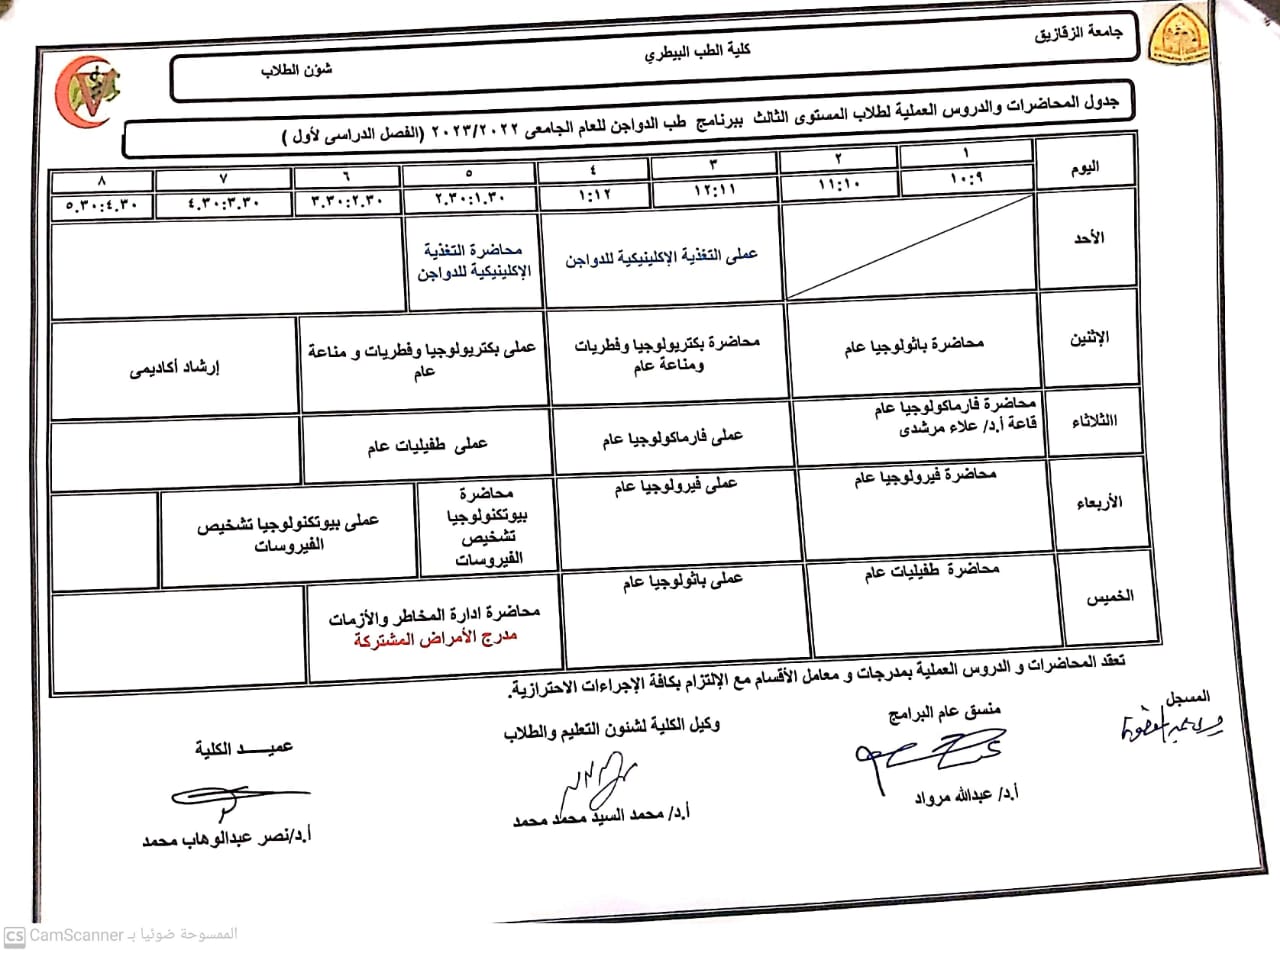 جامعة الزقازيق
كلية الطب البيطري
شؤن الطلاب
جدول المحاضرات والدروس العملية لطلاب المستوى الثالث ببرنامج طب الدواجن للعام الجامعى ٢٠٢٣/٢٠٢٢ (الفصل الدراسى لأول )
اليوم
١ ٢ ٣ ٤ ٥ ٦ ٧ ٨
١٠:٩ ١١:١٠ ١٢:١١ ١:١٢ ٢.٣٠:١.٣٠ ٣.٣٠:٢.٣٠ ٤.٣٠:٣.٣٠ ٥.٣٠:٤.٣٠
الأحد
عملى التغذية الإكلينيكية للدواجن
محاضرة التغذية
الإكلينيكية للدواجن
الإثنين
محاضرة باثولوجيا عام
محاضرة بكتريولوجيا وفطريات
ومناعة عام
عملى بكتريولوجيا وفطريات و مناعة
عام
إرشاد أكاديمى
االثلاثاء
محاضرة فارماكولوجيا عام
قاعة أ.د/ علاء مرشدى
عملى فارماكولوجيا عام
عملى طفيليات عام
الأربعاء
محاضرة فيرولوجيا عام
عملى فيرولوجيا عام
محاضرة
بيوتكنولوجيا
تشخيص
الفيروسات
عملى بيوتكنولوجيا تشخيص
الفيروسات
الخميس
محاضرة طفيليات عام
عملى باثولوجيا عام
محاضرة ادارة المخاطر والأزمات
مدرج الأمراض المشتركة
تعقد المحاضرات و الدروس العملية بمدرجات و معامل الأقسام مع الإلتزام بكافة الإجراءات الاحترازية.
المسجل
منسق عام البرامج
أ.د/ عبدالله مرواد
وكيل الكلية لشئون التعليم والطلاب
أ.د/ محمد السيد محمد محمد
عميـــد الكلية
أ.د/نصر عبدالوهاب محمد
CS CamScanner الممسوحة ضوئيا بـ